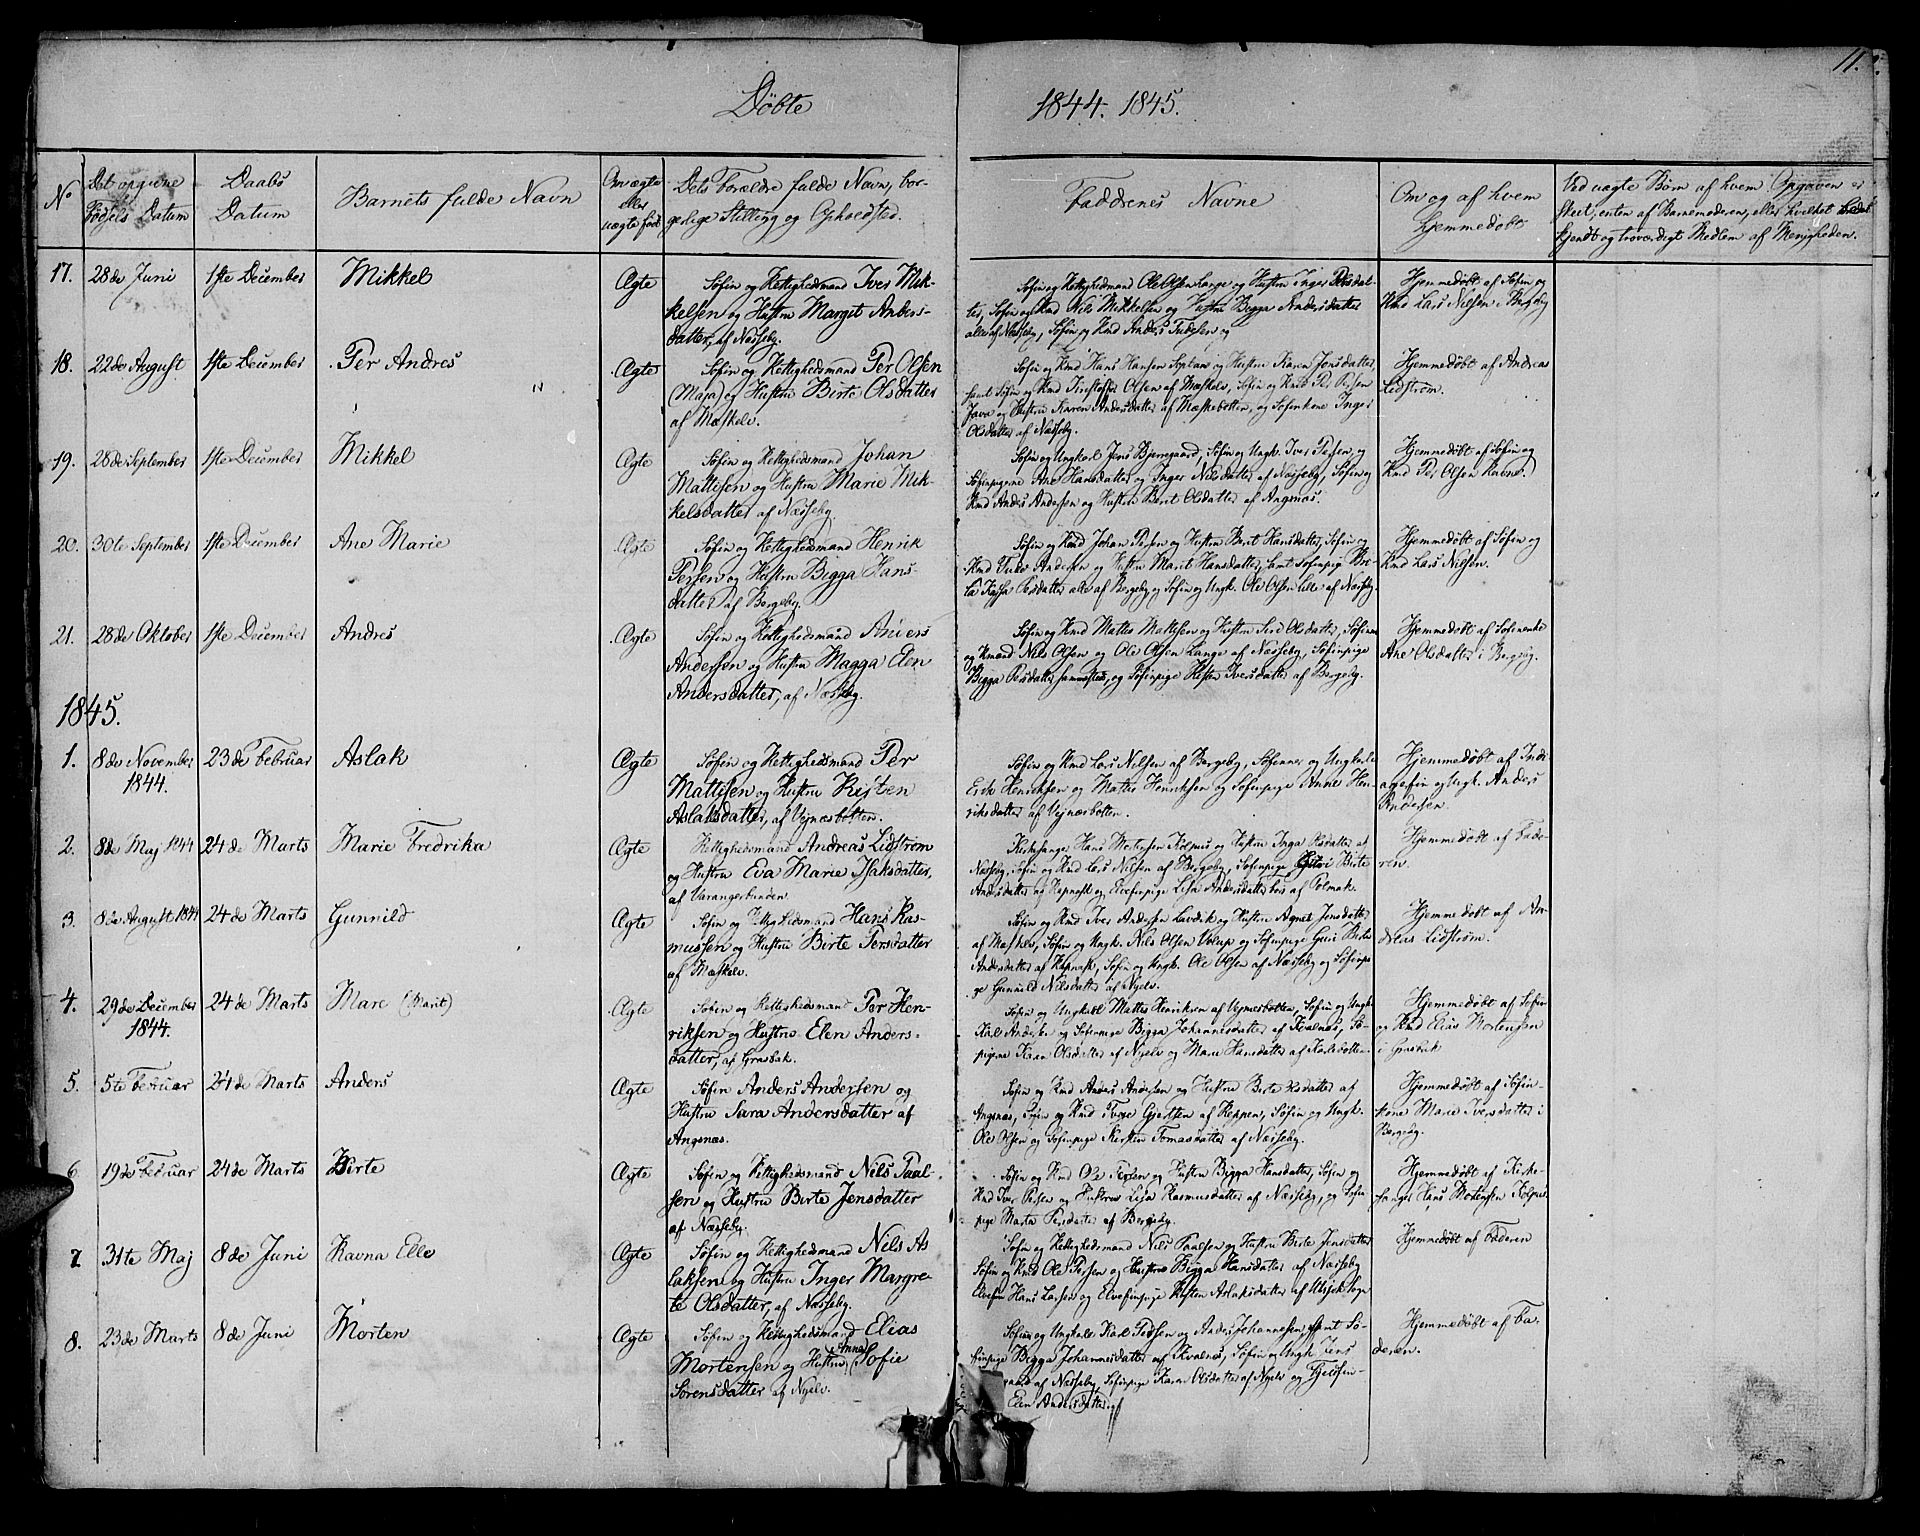 11.
Döbte
1844. 1845.
No
Det opgivne
Födsels Datum
Daabs
Datum
Barnets fulde Navn
Om ægte
eller
uægte född
Dets Forældre fulde Navn, bor-
gerlige Stilling og Opholdsted.
Faddrenes Navne
Om og af hvem
hjemmedöbt
Ved uægte Börn af hvem Opgaven er
skeet, enten af Barnemoderen, eller hvilket
kjendt og troværdigt Medlem af Menigheden.
17.
28de Juni
1ste December
Mikkel
Ægte
Söfin og Rettighedsmand Iver Mik-
kelsen og Hustru Margit Anders-
datter, af Næsseby.
Söfin og Rettighedsmand Ole Olsen Lange og Hustru Inger
Söfin og Rmd Nils Mikkelsen og Hustru Bigga Andersdatter
alle af Næsseby, Söfin og Rmd Anders Tudesen og
Hjemmedöbt af Söfin og
Rmd Lars Nilsen i Bergeby
18.
22de August
1ste December
Per Andres
Ægte
Söfin og Rettighedsmand Per Olsen
(Maja) og Hustru Birte Olsdatter
af Mæskelv.
Söfin og Rmd Hans Hansen og Hustru Karen Jonsdatter,
samt Söfin og Rmd Kristoffer Olsen af Mæskelv, Söfin og Rmd Per Persen
og Hustru Karen Andersdatter af Mæskebotten, og Söfinkone Inger
Olsdatter af Næsseby.
Hjemmedöbt af Andreas
Lidström.
19.
28de September
1ste December
Mikkel
Ægte
Söfin og Rettighedsmand Johan
Mattisen og Hustru Marie Mik-
kelsdatter af Næsseby
Söfin og Ungkarl Jens Bjerngaard, Söfin og Ungk. Iver Persen, og
Söfinpigerne Ane Hansdatter og Inger Nilsdatter af Næsseby, Söfin og
Rmd Anders Andersen og Hustru Berit Olsdatter af Angsnæs.
Hjemmedöbt af Söfin og
Rmd Per Olsen Ravna.
20.
30te September
1ste December
Ane Marie
Ægte
Söfin og Rettighedsmand Henrik
Persen og Hustru Bigga Hans-
datter af Bergeby.
Söfin og Rmd Johan Persen og Hustru Berit Hansdatter, Söfin og
Rmd Tudo Andersen og Hustru Marit Hansdatter, samt Söfinpig
Persdatter alle af Bergeby og Söfin og Ungk. Ole Olsen Lille af Næsseby.
Hjemmedöbt af Söfin og
Rmd Lars Nilsen.
21.
28de Oktober
1ste December
Andres
Ægte
Söfin og Rettighedsmand Anders
Andersen og Hustru Magga Elen
Andersdatter, af Næsseby.
Söfin og Rmd Mattes Mattisen og Hustru Siri Olsdatter, Söfinne
og Rmænd Nils Olsen og Ole Olsen Lange af Næsseby, Söfinpige
Bigga Persdatter sammesteds, og Söfinpige Kisten Iversdatter af Bergeby.
Hjemmedöbt af Söfinenke
Ane Olsdatter i Bergeby.
1845.
1.
8de November
1844.
23de Februar
Aslak
Ægte
Söfin og Rettighedsmand Per
Mattisen og Hustru Kisten
Aslaksdatter, af Vejnæsbotten.
Söfin og Rmd Lars Nilsen af Bergeby, Söfinner og Ungkarle
Erik Henriksen og Mattis Henriksen og Söfinpige Anne Hen-
riksdatter af Vejnæsbotten.
Hjemmedöbt af
og Ungk. Anders
Andersen.
2.
8de Maj 1844
24de Marts
Marie Fredrika
Ægte
Rettighedsmand Andreas Lidström
og Hustru Eva Marie Isaksdatter,
af Varangerbunden.
Kirkesanger Hans Mortensen Kolpus og Hustru Inga af
Næsseby, Söfin og Rmd Lars Nilsen af Bergeby, Söfinpige Birte
Andersdatter og Elvefinpige Lisa Andersdatter af Polmak.
Hjemmedöbt af Fade-
ren.
3.
8de August 1844
24de Marts
Gunnild
Ægte
Söfin og Rettighedsmand Hans Ras-
mussen og Hustru Birte Persdatter
af Mæskelv.
Söfin og Rmd Iver Andersen og Hustru Agnet Jonsdatter
af Mæskelv, Söfin og Ungk. Nils Olsen og Söfinpige Guri Birte
Andersdatter af Kapnask, Söfin og Ungk. Ole Olsen af Næsseby og Söfinpi-
ge Gunnild Nilsdatter af Nyelv.
Hjemmedöbt af An-
dreas Lidström.
4.
29de December
1844.
24de Marts
Mare (Marit)
Ægte
Söfin og Rettighedsmand Per Hen-
riksen og Hustru Elen Anders-
datter, af Græsbak.
Söfin og Ungkarl Mattes Henriksen af Vejnæsbotten, Söfin og Ungk
Karl Andersen og Söfinpige Bigga Johannesdatter af Kvalnæs, Sö-
pigerne Karen Olsdatter af Nyelv og Marie Hansdatter af Karlebotten.
Hjemmedöbt af Söfin
og Rmd Elias Mortensen
i Græsbak
5.
5te Februar
24de Marts
Anders
Ægte
Söfin Anders Andersen og
Hustru Sara Andersdatter af
Angsnæs.
Söfin og Rmd Anders Andersen og Hustru Birte Olsdatter af
Angsnæs, Söfin og Rmd Tyge Gjertsen af Reppen, Söfin og Ungk.
Ole Olsen og Söfinpige Kirsten Tomasdatter af Næsseby.
Hjemmedöbt af Söfin-
kone Marie Iversdatter i
Bergeby.
6.
19de Februar
24de Marts
Birte
Ægte
Söfin og Rettighedsmand Nils Paal-
sen og Hustru Birte Jensdatter
af Næsseby.
Söfin og Rmd Ole Persen og Hustru Bigga Hansdatter, Söfin og
Rmd Iver Persen og Hustru Lisa Rasmusdatter af Næsseby, og Söfin
pige Marta Persdatter af Bergeby.
Hjemmedöbt af Kirke-
sanger Hans Mortensen Kolpus.
7.
31te Maj
8de Juni
Ravna Elle
Ægte
Söfin og Rettighedsmand Nils As
laksen og Hustru Inger Margre-
te Olsdatter, af Næsseby.
Söfin og Rettighedsmand Nils Paalsen og Hustru Birte Jensdatter
Söfin og Rmd Ole Persen og Hustru Bigga Hansdatter af Næsseby
Elvefin Hans Larsen og Elvefinpige Kisten Aslaksdatter af Utsjok Sogn
Hjemmedöbt af Faderen
8.
23de Marts
8de Juni
Morten
Ægte
Söfin og Rettighedsmand Elias
Mortensen og Hustru Anne Sofie
Sörensdatter af Nyelv.
Söfin og Ungkarle Karl Pedersen og Anders Johannesen, samt Sö-
finpige Bigga Johannesdatter af Kvalnæs, Söfin og Ungk Jens
af Næsseby, Söfinpige Karen Olsdatter af Nyelv og Fjeldfin-
Elen Andersdatter
Hjemmedöbt af Fa-
deren.